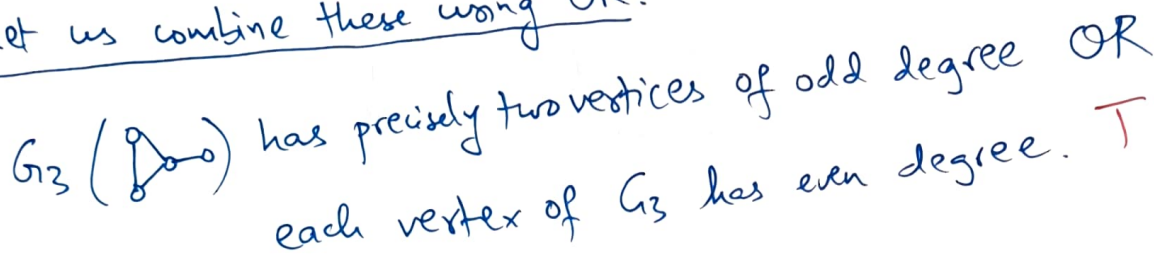 et us combine these using OR.
G3 ( ) has precisely two vertices of odd degree OR
each vertex of G3 has even degree. T